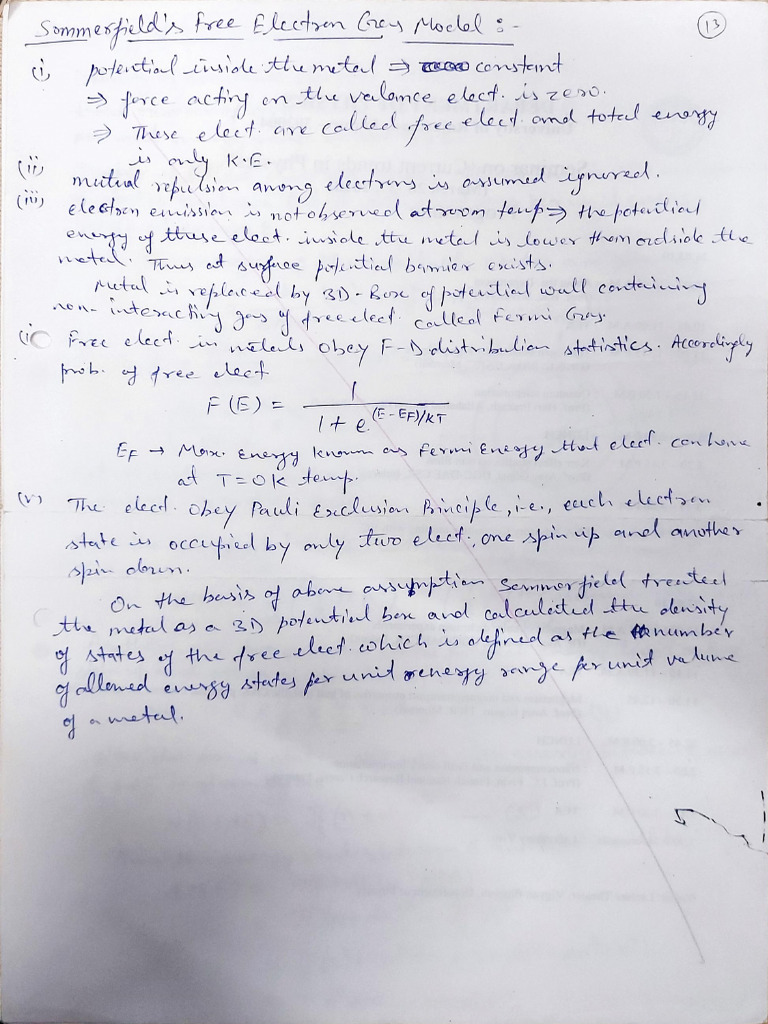 Sommerfield's Free Electron Gas Model :-
13
(i) potential inside the metal ⇒ constant
⇒ force acting on the valance elect. is zero.
⇒ These elect. are called free elect. and total energy
is only K.E.
(ii) mutual repulsion among electrons is assumed ignored.
(iii) electron emission is not observed at room temp ⇒ the potential
energy of these elect. inside the metal is lower than outside the
metal. Thus at surface potential barrier exists.
Metal is replaced by 3D-Box of potential wall containing
non-interacting gas of free elect. called Fermi Gas.
(i Free elect. in metals obey F-D distribution statistics. Accordingly
prob. of free elect
F(E) = 1 / 1 + e^(E-EF)/KT
EF → Max. Energy known as Fermi Energy that elect. can have
at T=0K temp.
(v) The elect. obey Pauli Exclusion Principle, i.e., each electron
state is occupied by only two elect., one spin up and another
spin down.
On the basis of above assumption Sommerfield treated
the metal as a 3D potential box and calculated the density
of states of the free elect. which is defined as the number
of allowed energy states per unit energy range per unit volume
of a metal.